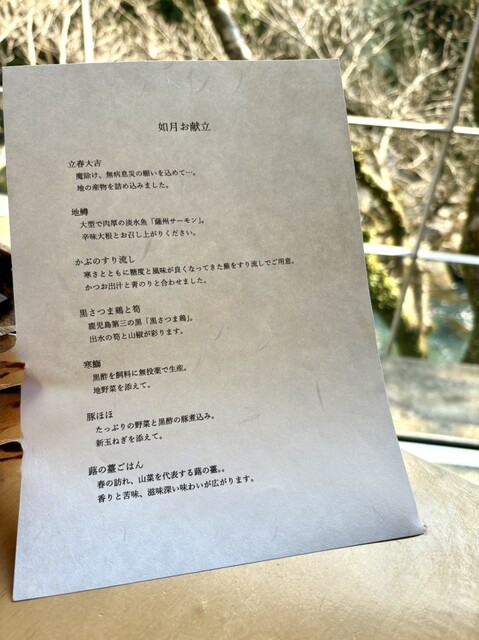 如月お献立
立春大吉
魔除け、無病息災の願いを込めて…。
地の産物を詰め込みました。
地鱒
大型で肉厚の淡水魚「薩州サーモン」。
辛味大根とお召し上がりください。
かぶのすり流し
寒さとともに糖度と風味が良くなってきた蕪をすり流しでご用意。
かつお出汁と青のりと合わせました。
黒さつま鶏と筍
鹿児島第三の黒「黒さつま鶏」。
出水の筍と山椒が彩ります。
寒鰤
黒酢を飼料に無投薬で生産。
地野菜を添えて。
豚ほほ
たっぷりの野菜と黒酢の豚煮込み。
新玉ねぎを添えて。
蕗の薹ごはん
春の訪れ、山菜を代表する蕗の薹。。
香りと苦味、滋味深い味わいが広がります。